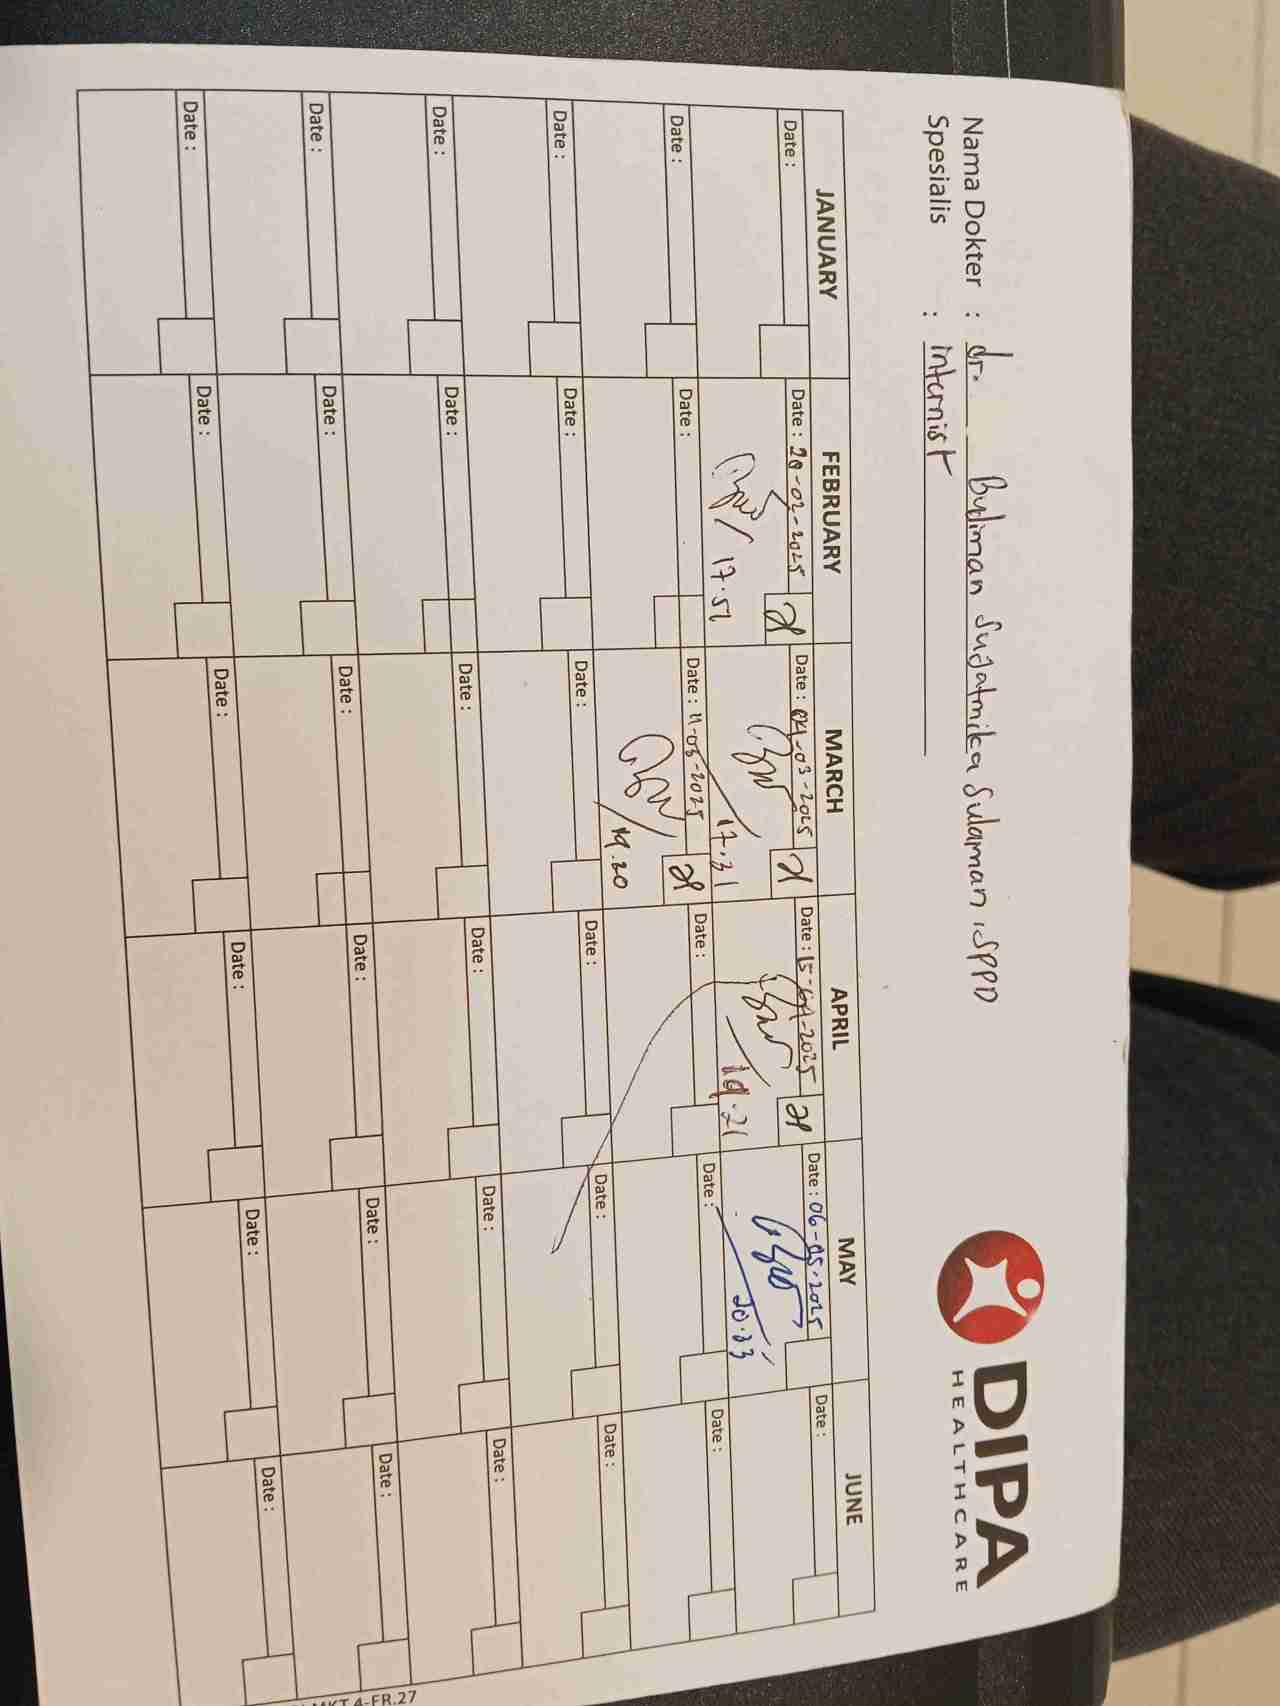 Nama Dokter : dr. Budiman Sujatmika Sulaman, SPPD
Spesialis : Internist
DIPA
HEALTHCARE
JANUARY FEBRUARY MARCH APRIL MAY JUNE
Date : Date : 20-02-2025 Date : 04-03-2025 Date : 15-04-2025 Date : 06-05-2025 Date :
17.51 17.31 19.21 20.33
Date : Date : Date : 11-03-2025 Date : Date : Date :
19.20
Date : Date : Date : Date : Date : Date :
Date : Date : Date : Date : Date : Date :
Date : Date : Date : Date : Date : Date :
Date : Date : Date : Date : Date : Date :
MKT.4-FR.27